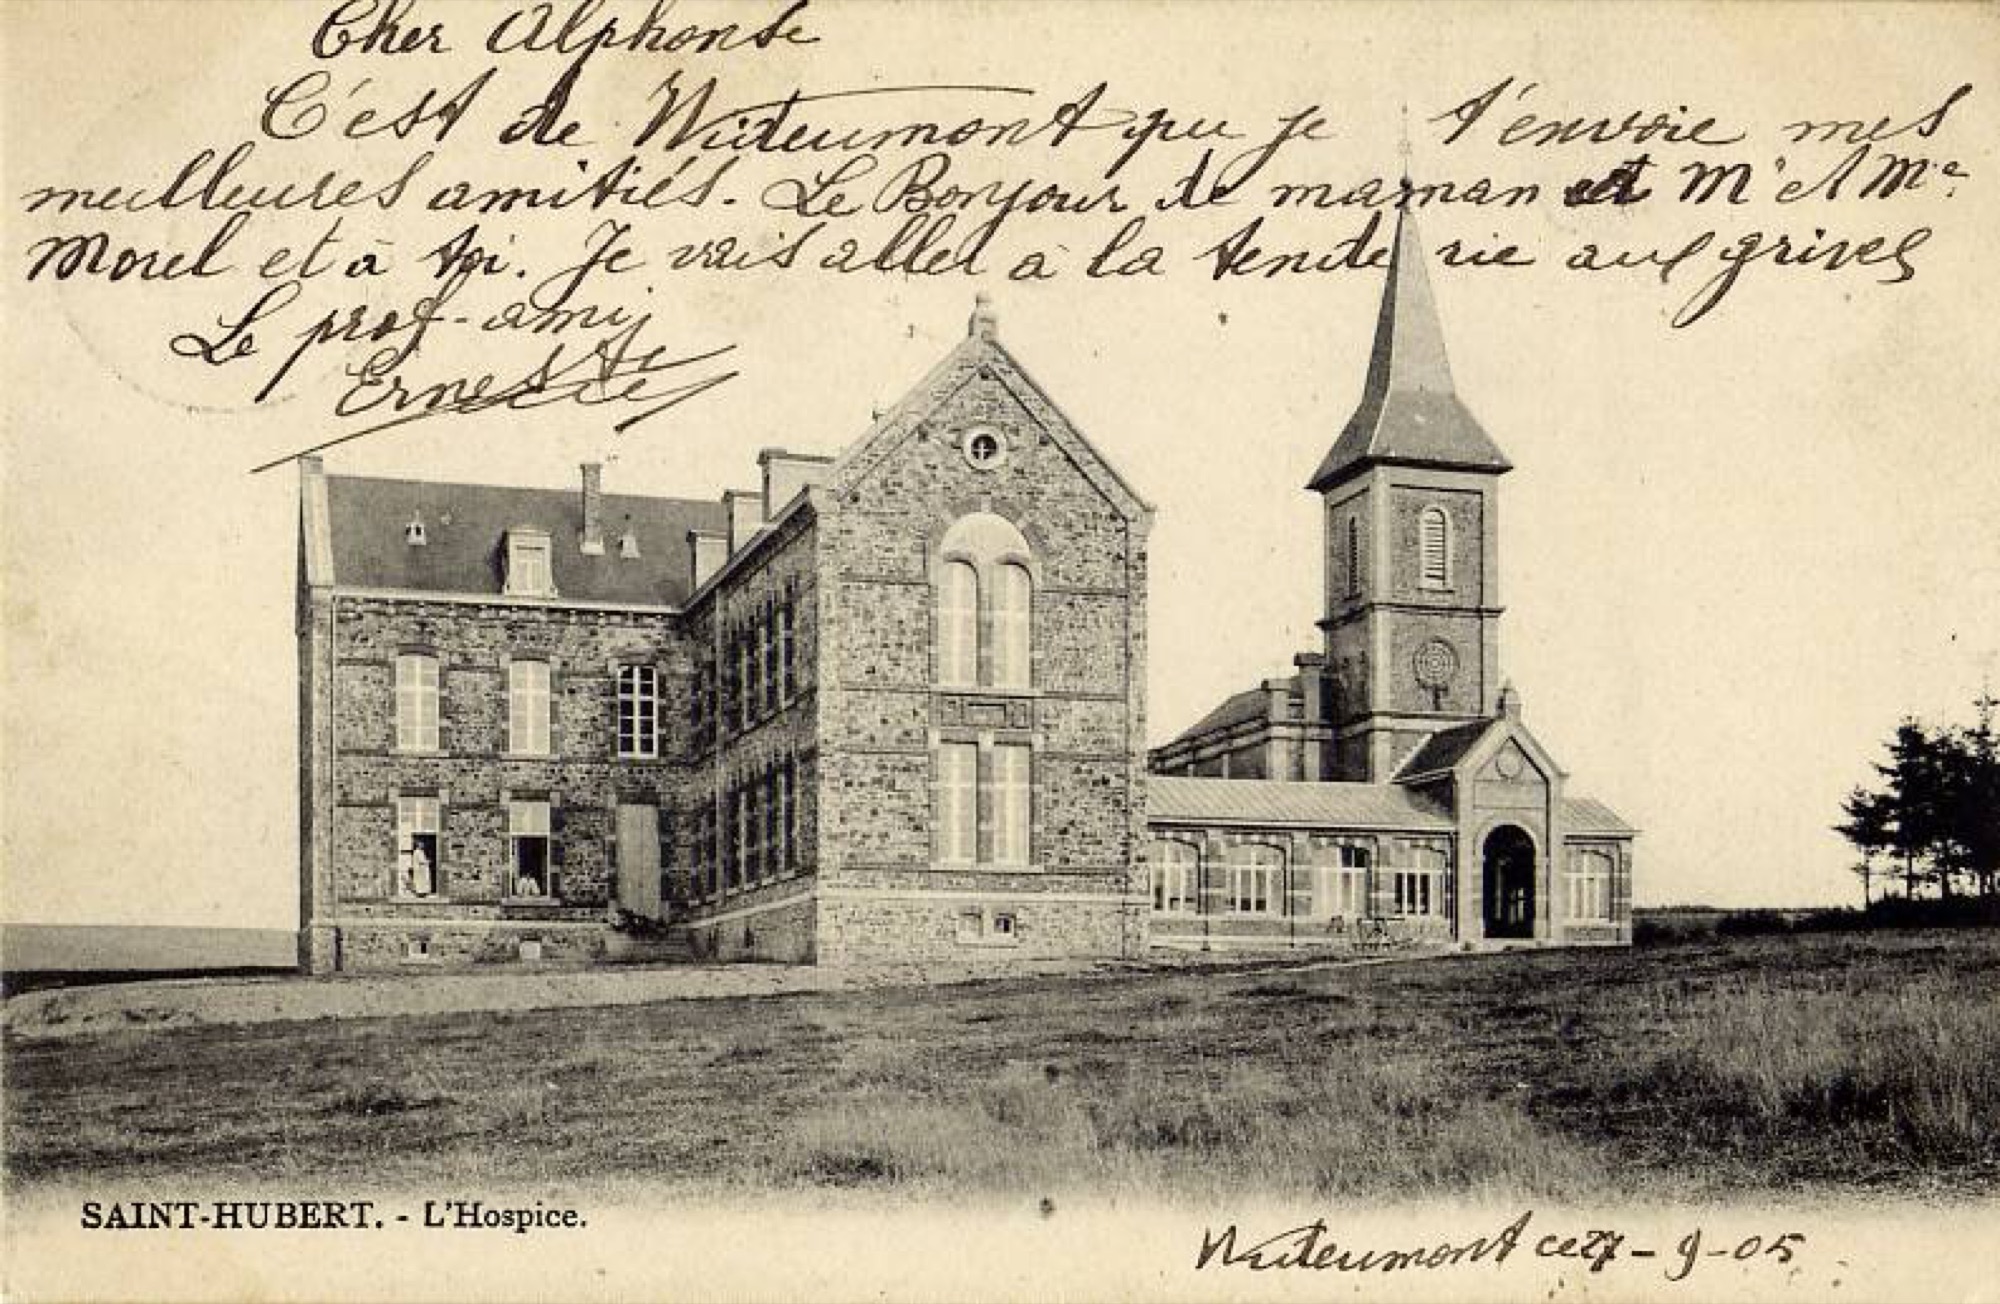 Cher Alphonse
C'est de Witeumont que je t'envoie mes
meilleures amitiés. Le Bonjour de maman et Mr et Me
Morel et à toi. Je vais aller à la tenderie aux grives
Le prof-ami
Ernest
SAINT-HUBERT. - L'Hospice.
Witeumont ce 27-9-05